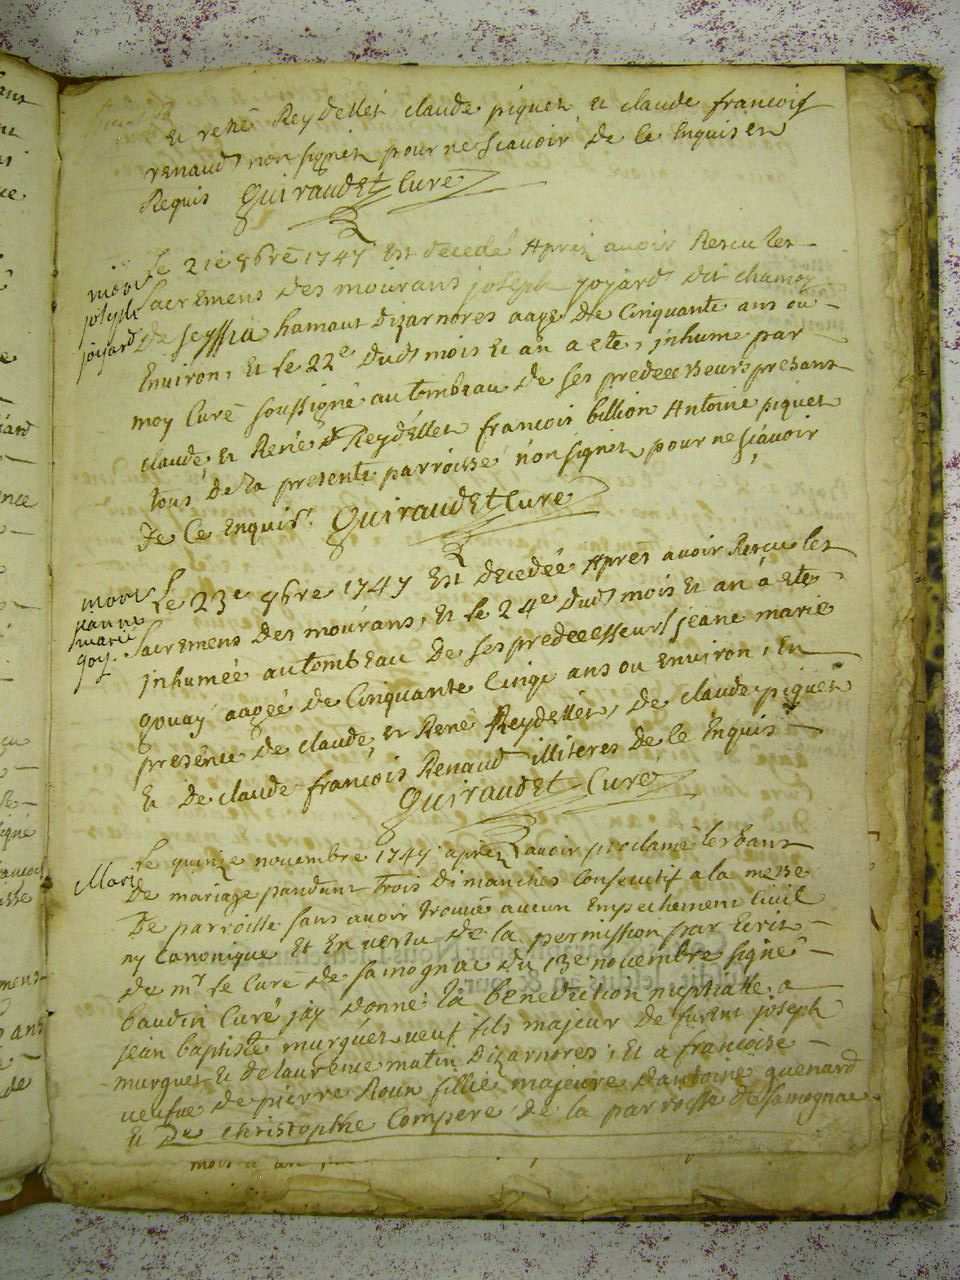 et rene Reydellet claude piquet et claude francois
renaud non signet pour ne scavoir de ce Enquis en
Requis Guiraudet Curé
Le 21e 9bre 1747 Est décédé Aprez avoir Rescu les
mort
joseph
joyard
Sacremens des mourans joseph joyard dit chamoy
de seyssia hamaut dizarnores aagé de Cinquante ans ou
Environ, Et le 22e dud mois et an a eté, inhumé par
moy Curé soussigné au tombeau de ses predecesseurs presans
claude et René Reydellet francois billion Antoine piquet
tous de la presente parroisse non signet pour ne scavoir
de Ce enquis. Guiraudet Curé
mort
jeanne
marie
goy.
Le 23e 9bre 1747 Est decedée Apres avoir Rescu les
Sacremens des mourans, et le 24e dud mois et an a eté
inhumée au tombeau de ses predecesseurs jeane marie
gouay aagée de Cinquante Cinq ans ou environ, En
presence de claude, et René Reydellet, de claude piquet
Et de claude francois Renaud illiteres de ce Enquis
Guiraudet Curé
Mari
Le quinze novembre 1747 aprez avoir proclamé les bans
de mariage pandant trois dimanches Consecutif a la messe
de parroisse sans avoir trouvé aucun Empechement Civil
ny Canonique Et En vertu de la permission par Ecrit
de mr le Curé de samognac du 13e novembre signé
baudin Curé jay donné la benediction nuptialle a
jean baptiste murguet veuf fils majeur de furent joseph
murguet et de laurence matin dizarnores, Et a francoise
veufve de pierre Roux fillie majeure dantoine guenard
et de christophle Compere de la parroisse de samognac
mois et an